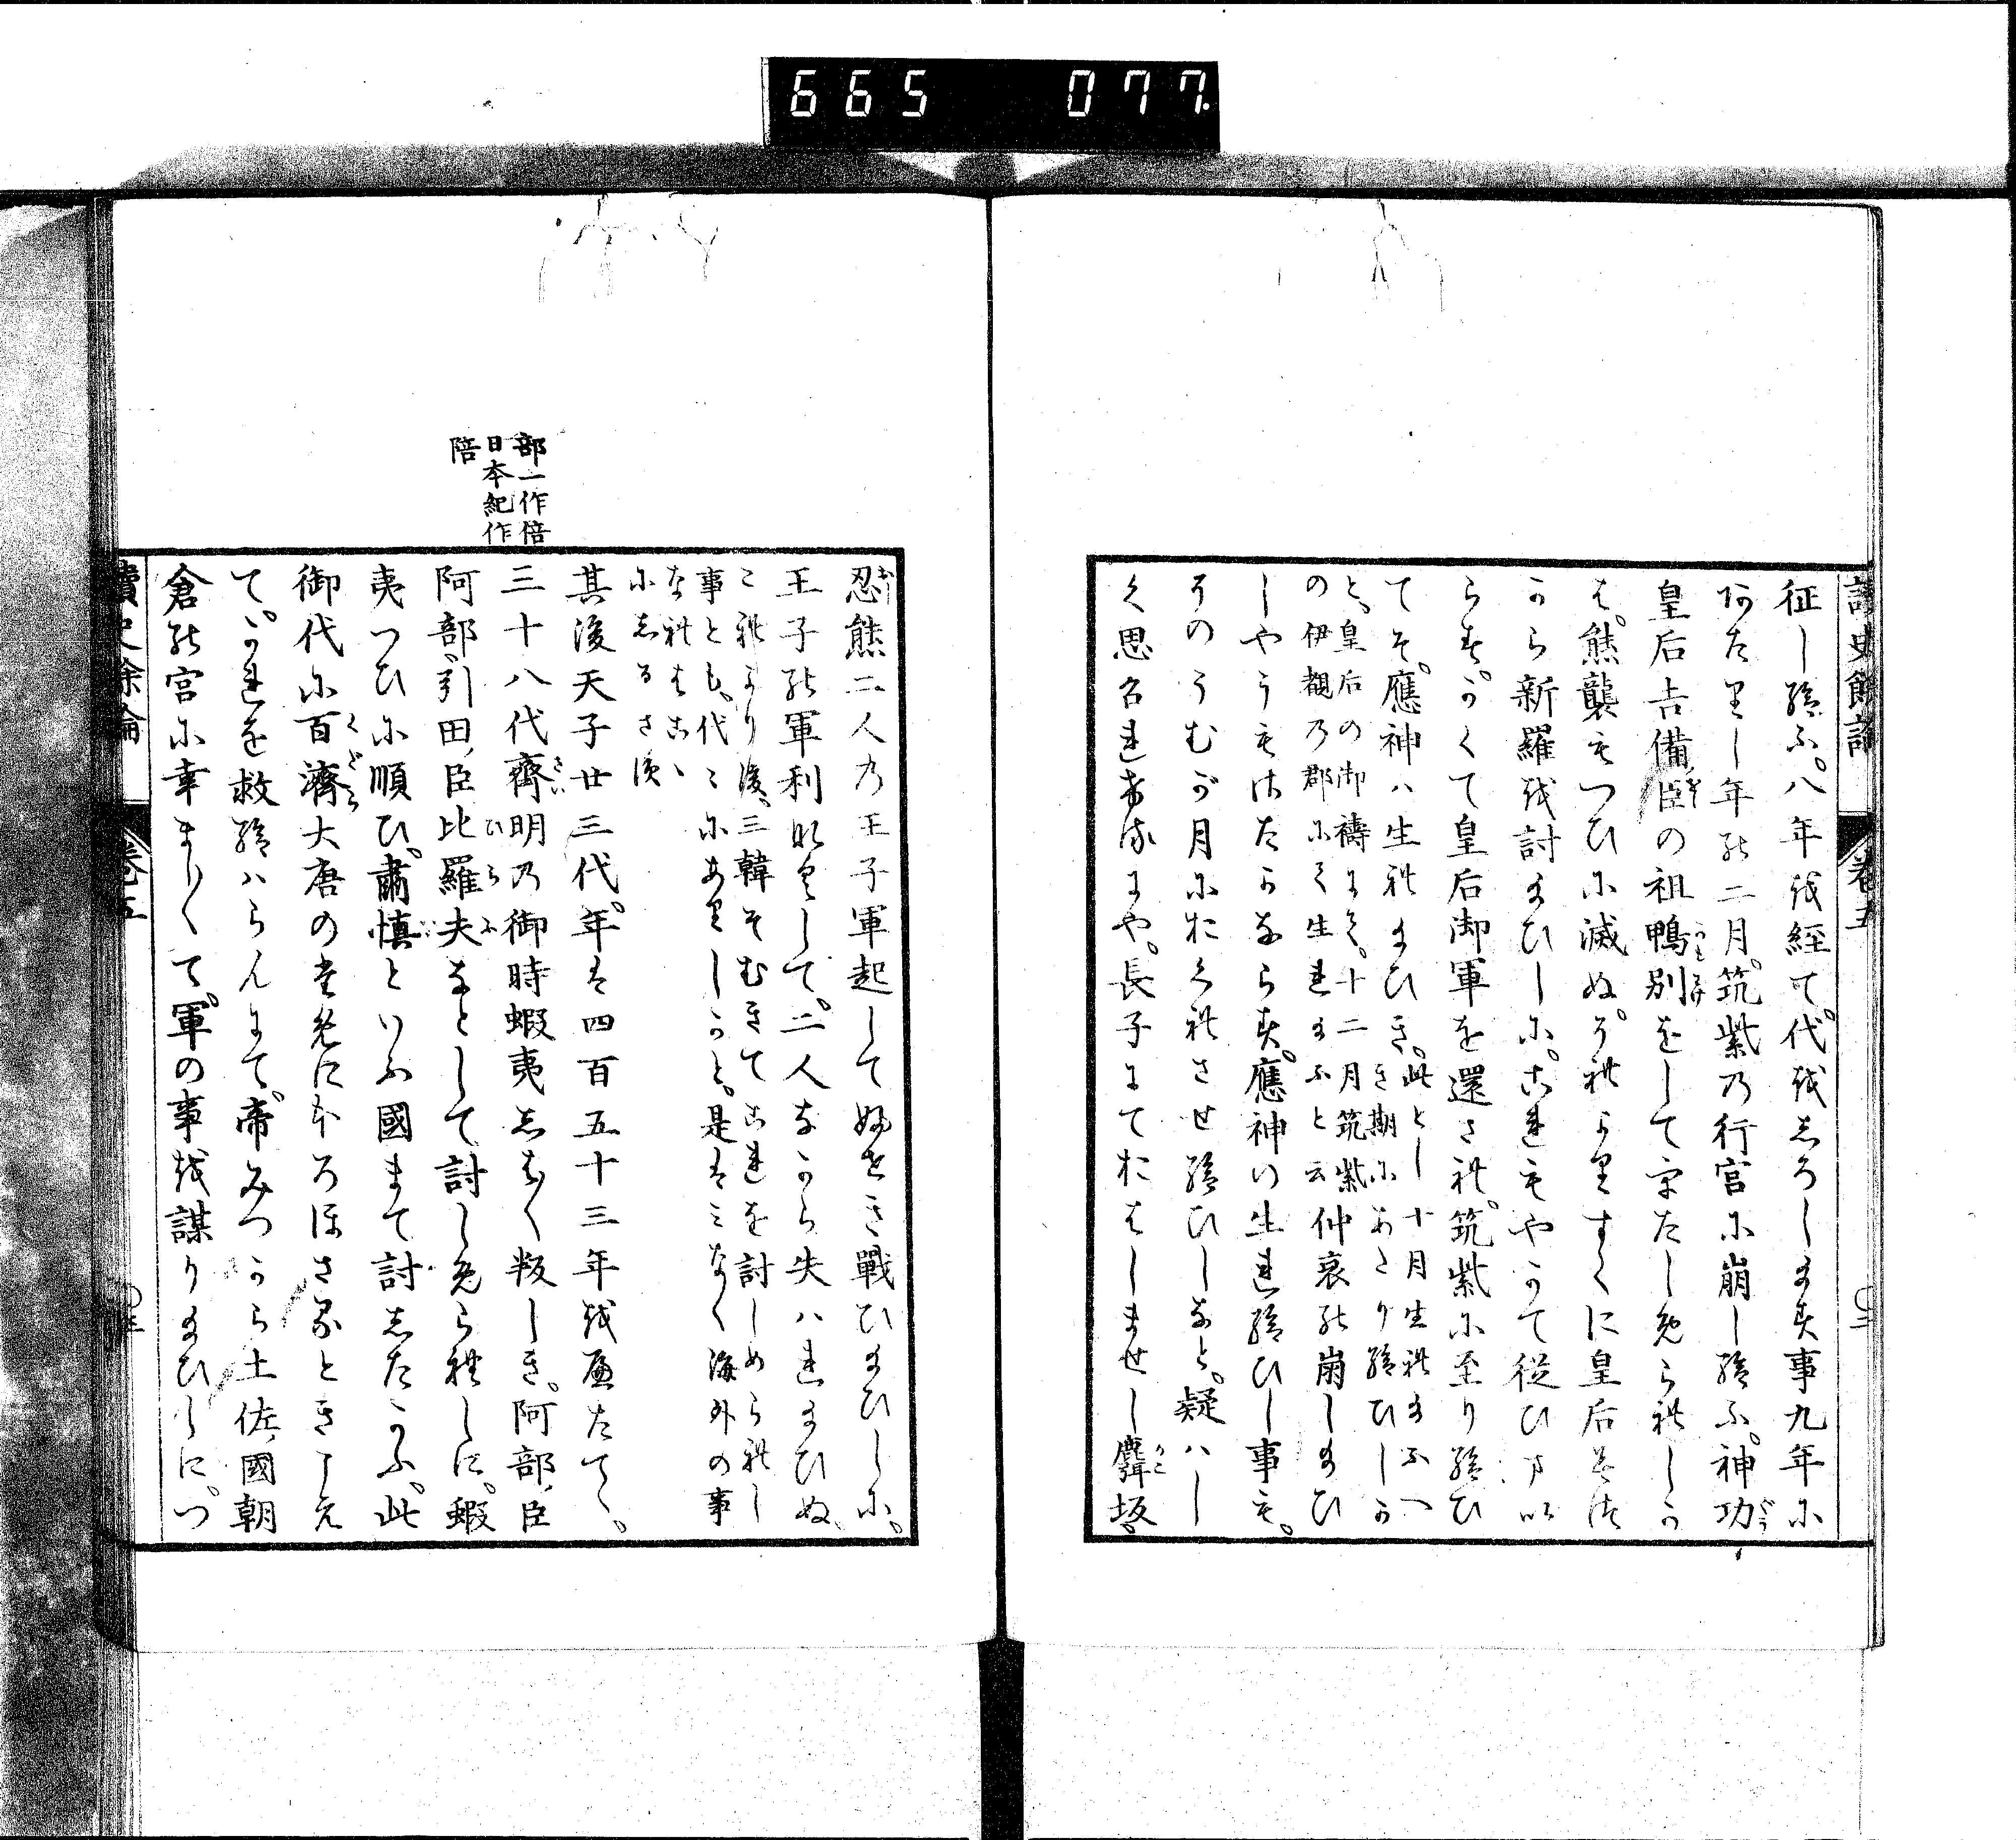 665 077
讀史餘論 卷五 〇二
征し給ふ。八年を経て。代をしろしめす事九年に
あたりし年の二月。筑紫の行宮に崩し給ふ。神功
皇后吉備臣の祖鴨別をして守たしめられしか
は。熊襲もつひに滅ぬ。それよりすくに皇后みつ
から新羅を討給ひしに。これもやかて従ひまい
らす。かくて皇后御軍を還され。筑紫に至り給ひ
てそ。應神ハ生れ給ひき。此とし十月生れ給ふへ
き期にあたり給ひしか
と、皇后の御禱にて。十二月筑紫
の伊覩の郡にて生れ給ふと云
仲哀の崩し給ひ
しやうもはたかならす。應神の生れ給ひし事も。
そのうむが月におくれさせ給ひしなと。疑ハし
く思召れけるにや。長子にておはしませし麛坂。
忍熊二人の王子軍起して始とき戰ひ給ひしに。
王子の軍利なくして。二人なから失ハれ給ひぬ。
これより後、三韓そむきてこれを討しめられし
事とも、代々にありしかと。是はみなく海外の事
なれはこゝ
にしるさす
其後天子廿三代。年は四百五十三年を歴たてく。
三十八代齊明の御時蝦夷しはく叛しき。阿部臣
阿部引田臣比羅夫なとして討しめられしに。蝦
夷つひに順ひ。肅慎といふ國まて討したかふ。此
御代に百濟大唐のためにほろほさるときこえ
て。かれを救給ハらんにて。帝みつから土佐國朝
倉の宮に幸ましくて。軍の事を謀り給ひしに。つ
部一作倍
日本紀作
陪
讀史餘論 卷五 〇三